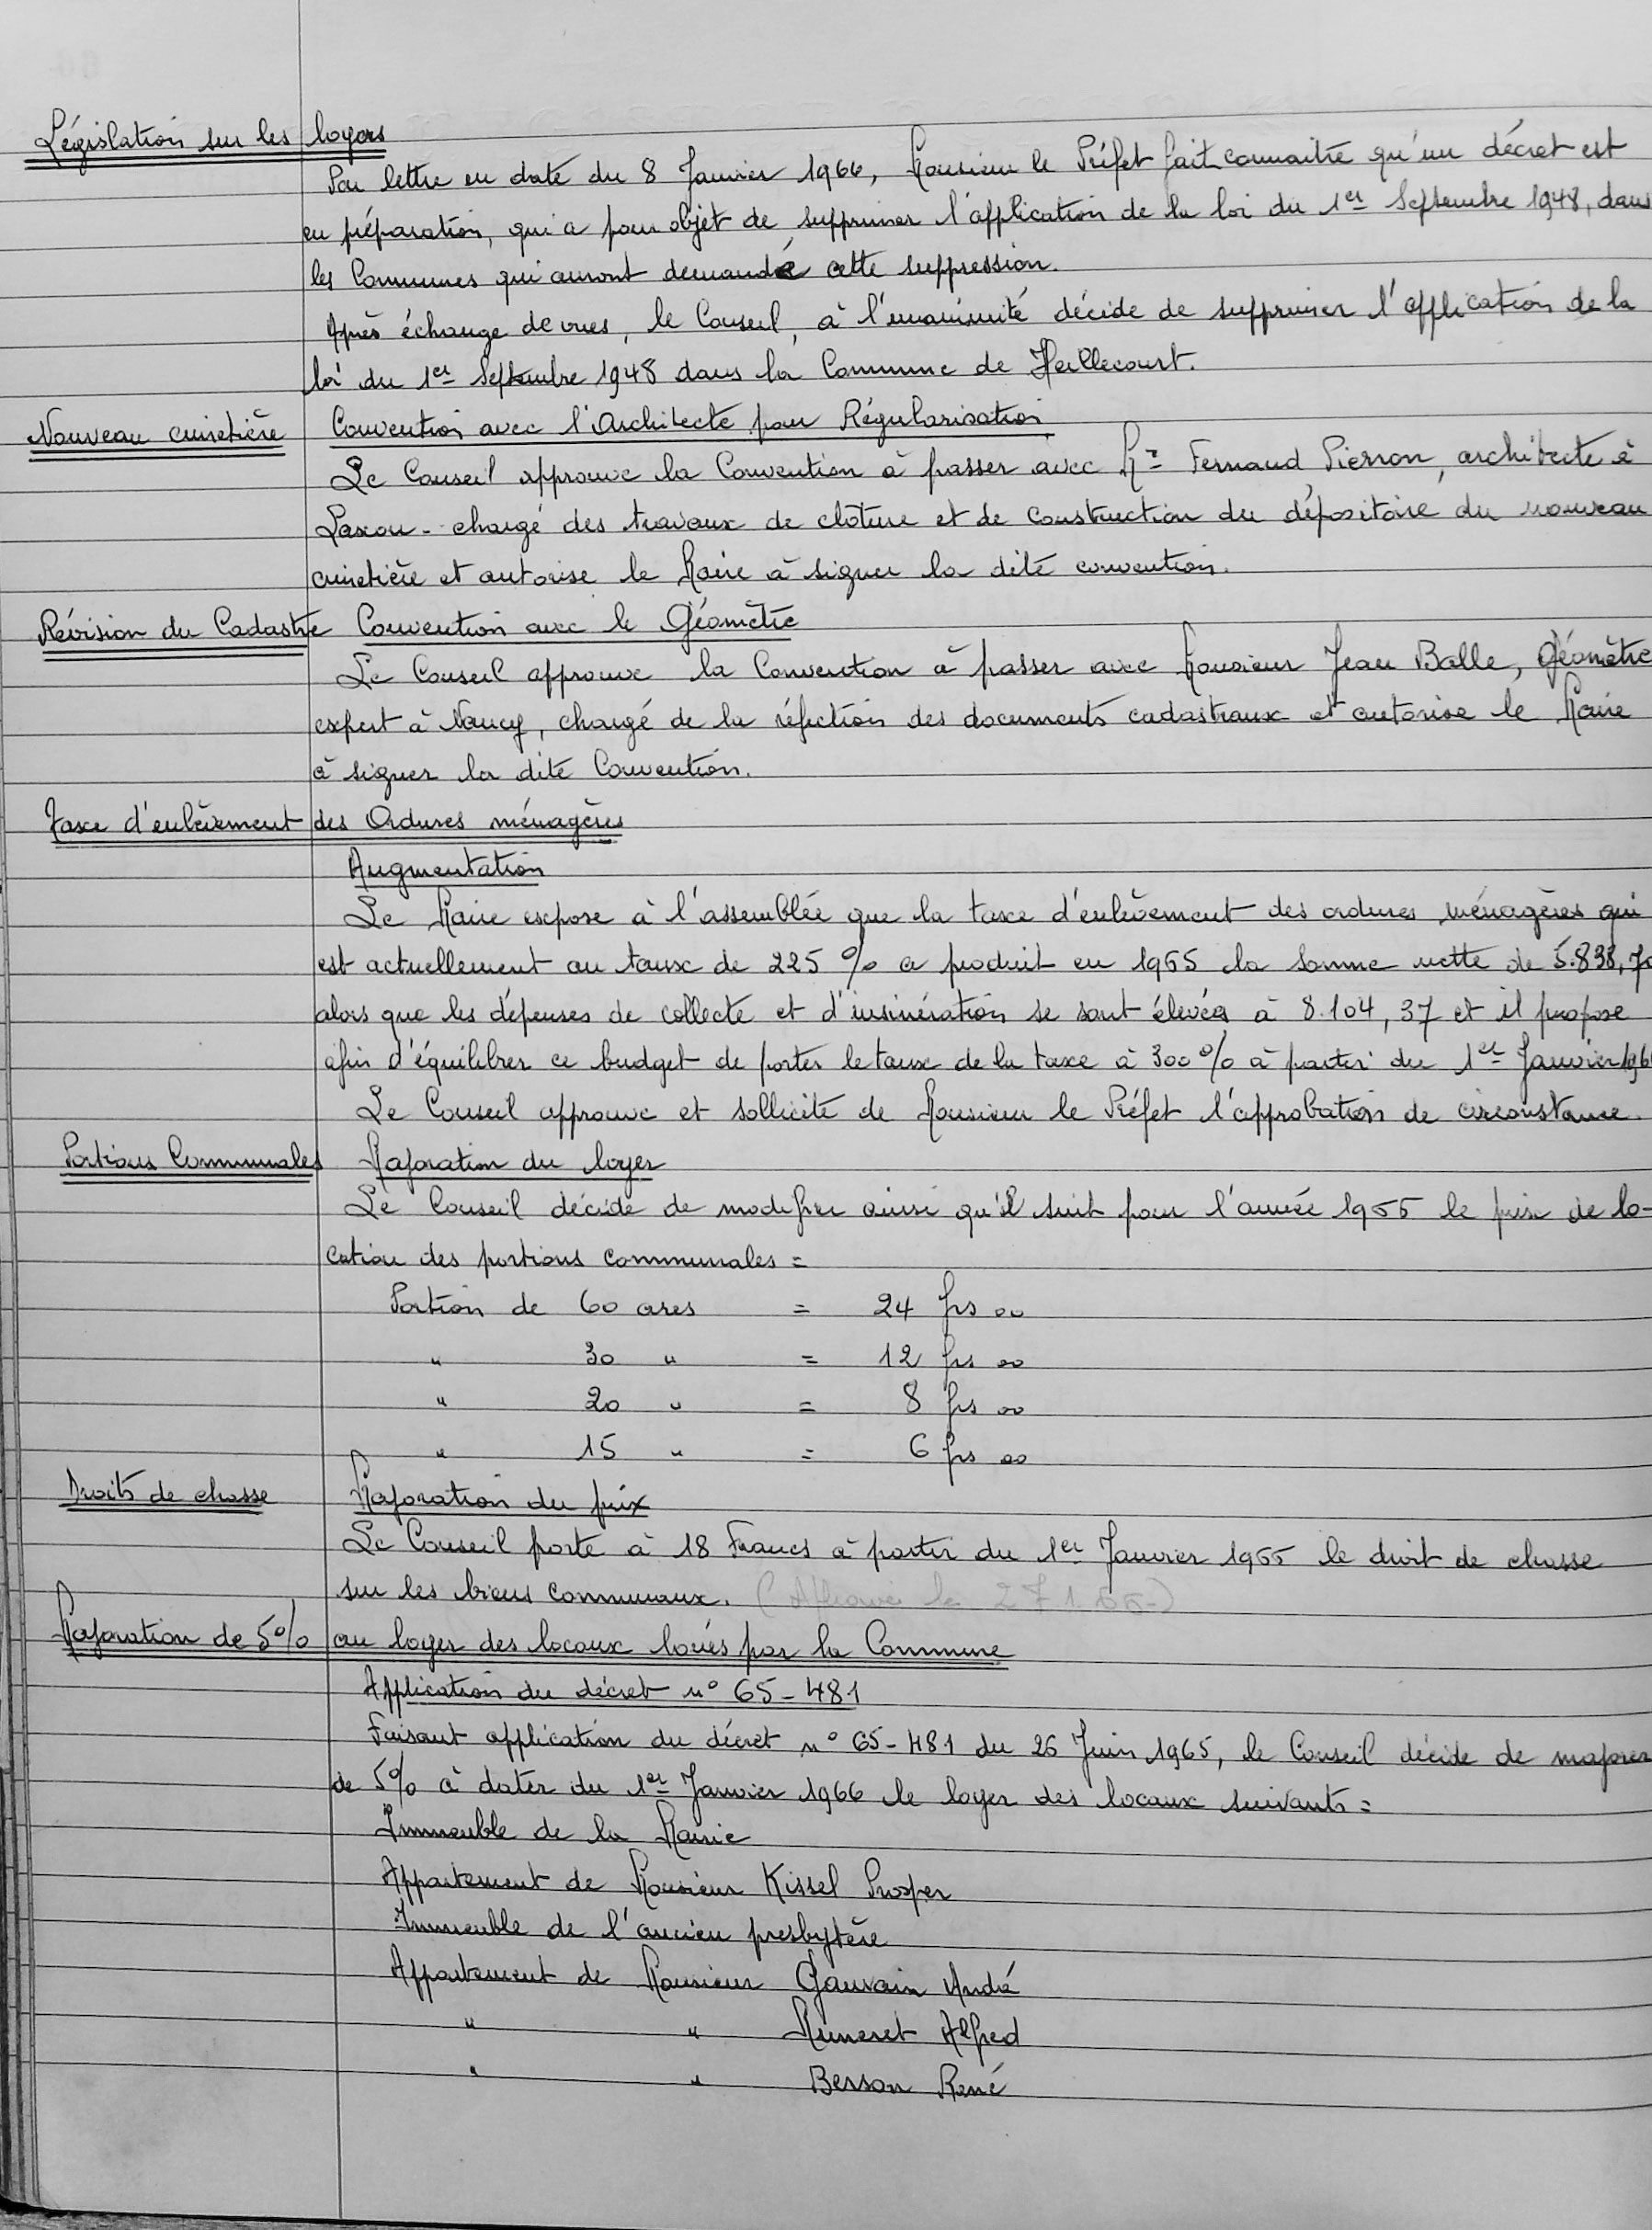 Législation sur les loyers
Par lettre en date du 8 Janvier 1966, Monsieur le Préfet fait connaitre qu'un décret est
en préparation, qui a pour objet de supprimer l'application de la loi du 1er Septembre 1948, dans
les Communes qui auront demandé cette suppression.
Après échange de vues, le Conseil, à l'unanimité décide de supprimer l'application de la
loi du 1er Septembre 1948 dans la Commune de Heillecourt.
Nouveau cimetière Convention avec l'Architecte pour Régularisation
Le Conseil approuve la Convention à passer avec Mr Fernand Pierron, architecte à
Laxou - chargé des travaux de clôture et de construction du dépositoire du nouveau
cimetière et autorise le Maire à signer la dite convention.
Révision du Cadastre Convention avec le Géomètre
Le Conseil approuve la Convention à passer avec Monsieur Jean Balle, Géomètre
expert à Nancy, chargé de la réfection des documents cadastraux et autorise le Maire
à signer la dite Convention.
Taxe d'enlèvement des Ordures ménagères
Augmentation
Le Maire expose à l'assemblée que la taxe d'enlèvement des ordures ménagères qui
est actuellement au taux de 225 % a produit en 1965 la somme nette de 5.838,70
alors que les dépenses de collecte et d'insinération se sont élevées à 8.104,37 et il propose
afin d'équilibrer ce budget de porter le taux de la taxe à 300 % à partir du 1er Janvier 196
Le Conseil approuve et sollicite de Monsieur le Préfet l'approbation de circonstance.
Portions Communales Majoration du loyer
Le Conseil décide de modifier ainsi qu'il suit pour l'année 1966 le prix de lo-
cation des portions communales =
Portion de 60 ares = 24 frs 00
" 30 " = 12 frs 00
" 20 " = 8 frs 00
" 15 " = 6 frs 00
Droits de chasse Majoration du prix
Le Conseil porte à 18 Francs à partir du 1er Janvier 1966 le droit de chasse
sur les biens communaux. (Approuvé le 27.1.66-)
Majoration de 5% au loyer des locaux loués par la Commune
Application du décret n° 65-481
Faisant application du décret n° 65-481 du 26 Juin 1965, le Conseil décide de majorer
de 5% à dater du 1er Janvier 1966 le loyer des locaux suivants =
Immeuble de la Mairie
Appartement de Monsieur Kissel Prosper
Immeuble de l'ancien presbytère
Appartement de Monsieur Gauvain André
" " Alfred
" " Berson René